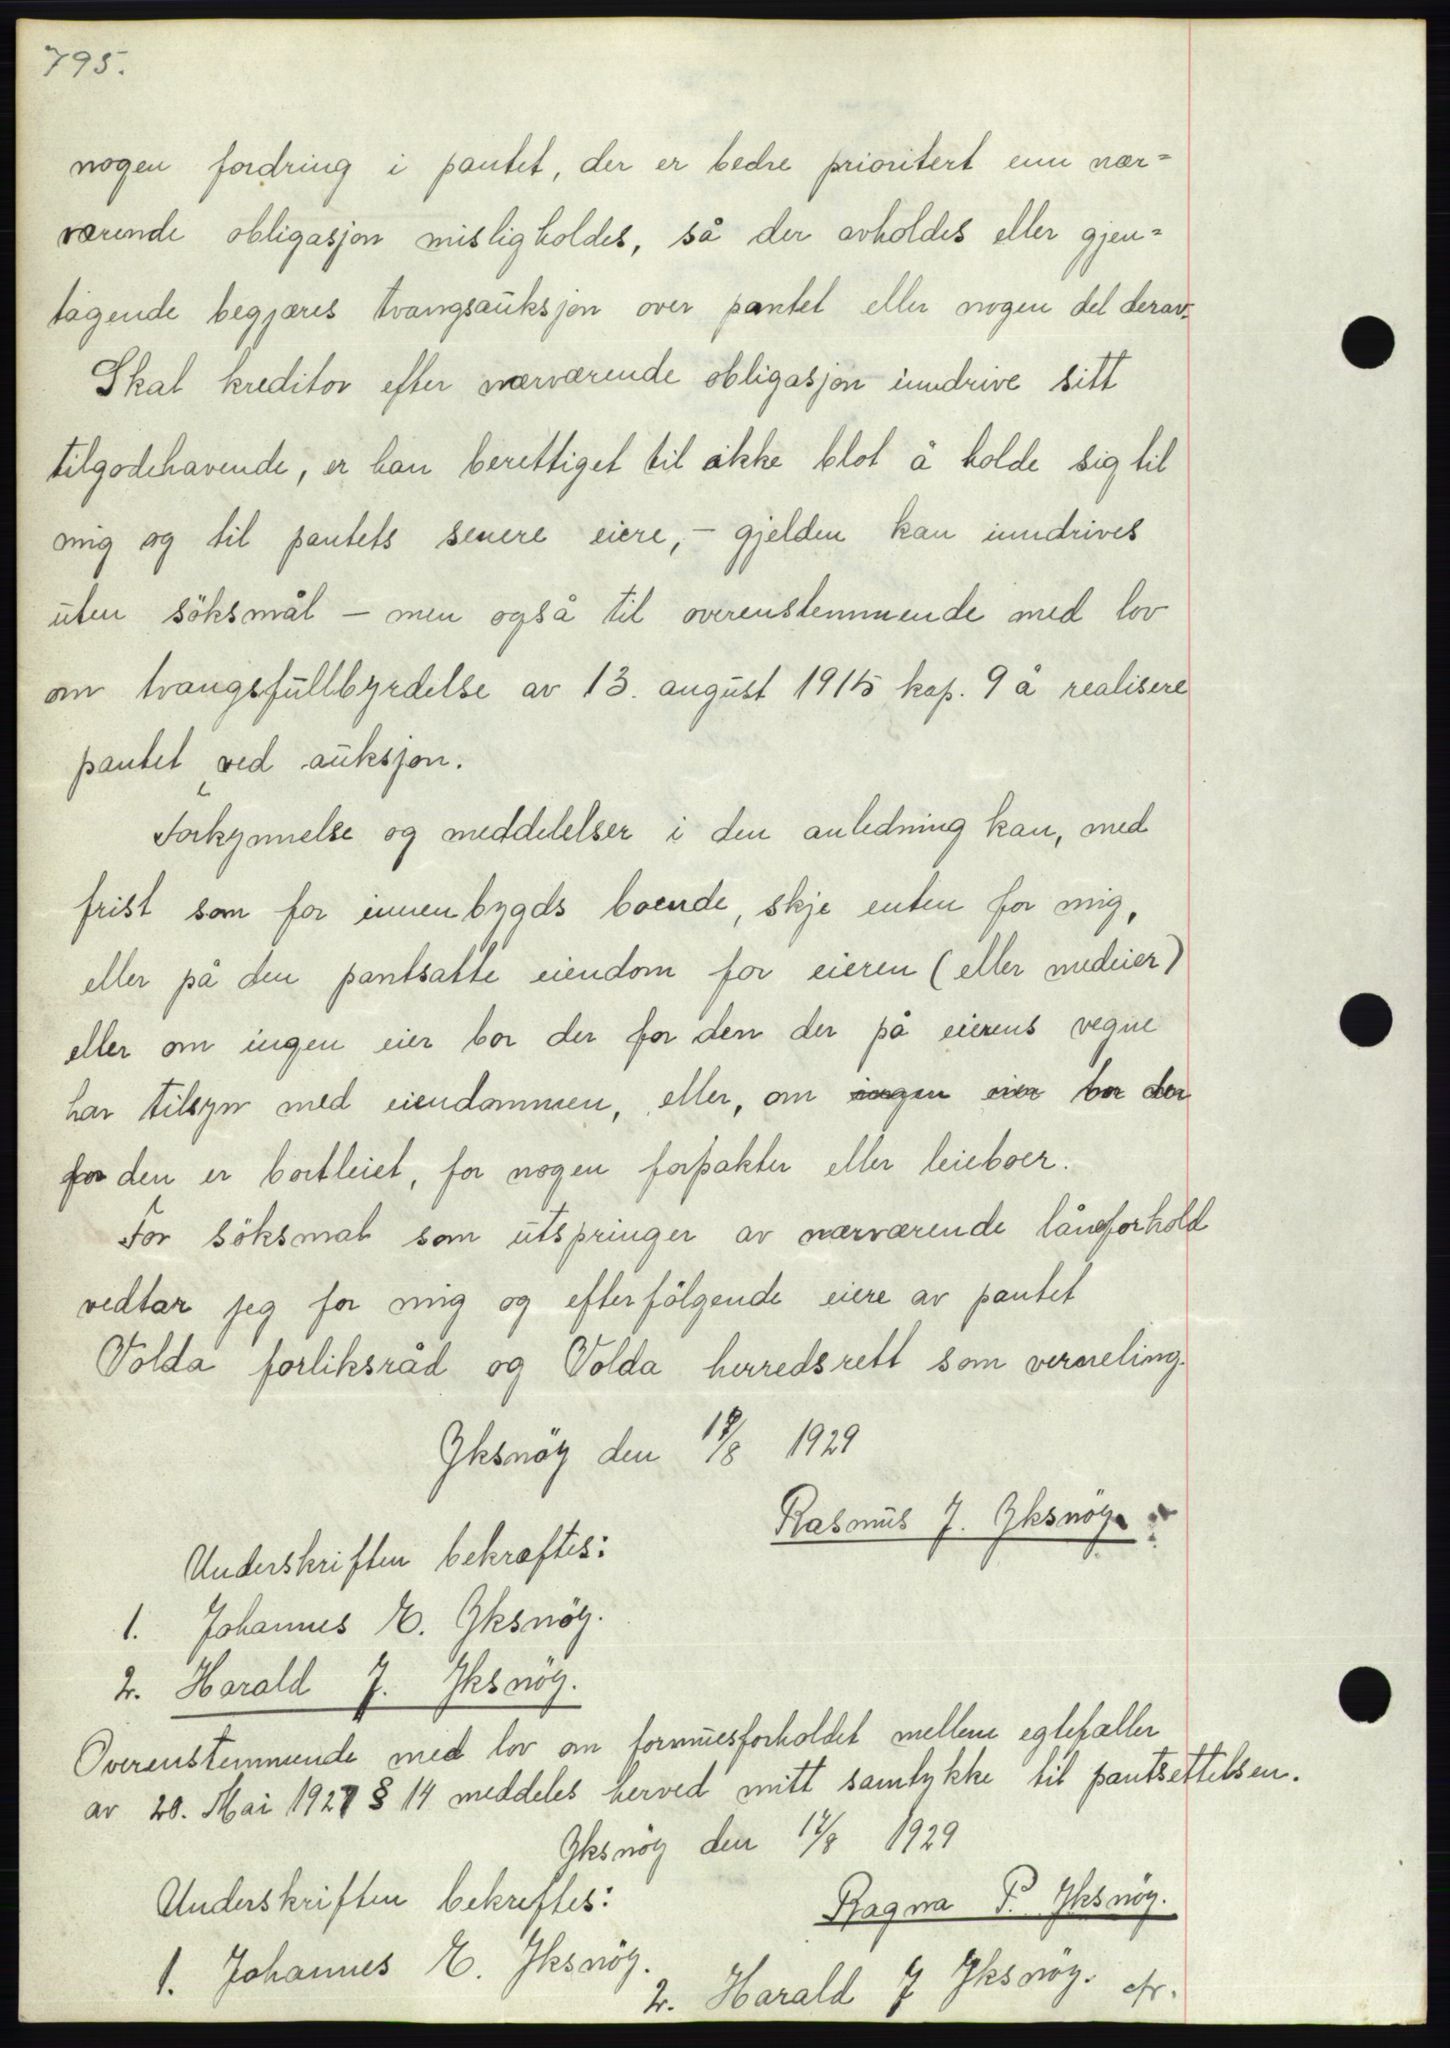 795.
nogen fordring i pantet, der er bedre prioritert enn nær=
værende obligasjon misligholdes, så der avholdes eller gjen=
tagende begjæres tvangsauksjon over pantet eller nogen del derav.
Skal kreditor efter nærværende obligasjon inndrive sitt
tilgodehavende, er han berettiget til ikke blot å holde sig til
mig og til pantets senere eiere, - gjelden kan inndrives
uten söksmål - men også til overenstemmende med lov
om tvangsfullbyrdelse av 13. august 1915 kap. 9 å realisere
pantet ved auksjon.
Forkynnelse og meddelelser i den anledning kan, med
frist som for innenbygds boende, skje enten for mig,
eller på den pantsatte eiendom for eieren (eller medeier)
eller om ingen eier bor der for den der på eierens vegne
har tilsyn med eiendommen, eller, om ingen eier bor der
for den er bortleiet, for nogen forpakter eller leieboer.
For söksmal som utspringer av nærværende låneforhold
vedtar jeg for mig og efterfölgende eiere av pantet
Volda forliksråd og Volda herredsrett som verneting.
Yksnöy den /8 1929
Rasmus J. Yksnöy.
Underskriften bekræftes:
1. Johannes E. Yksnöy.
2. Harald J. Yksnöy.
Overenstemmende med lov om formuesforholdet mellem egtefæller
av 20. Mai 1927 § 14 meddeles herved mitt samtykke til pantsettelsen.
Yksnöy den 17/8 1929
Underskriften bekreftes:
Ragna P. Yksnöy.
1. Johannes E. Yksnöy.
2. Harald J Yksnöy.